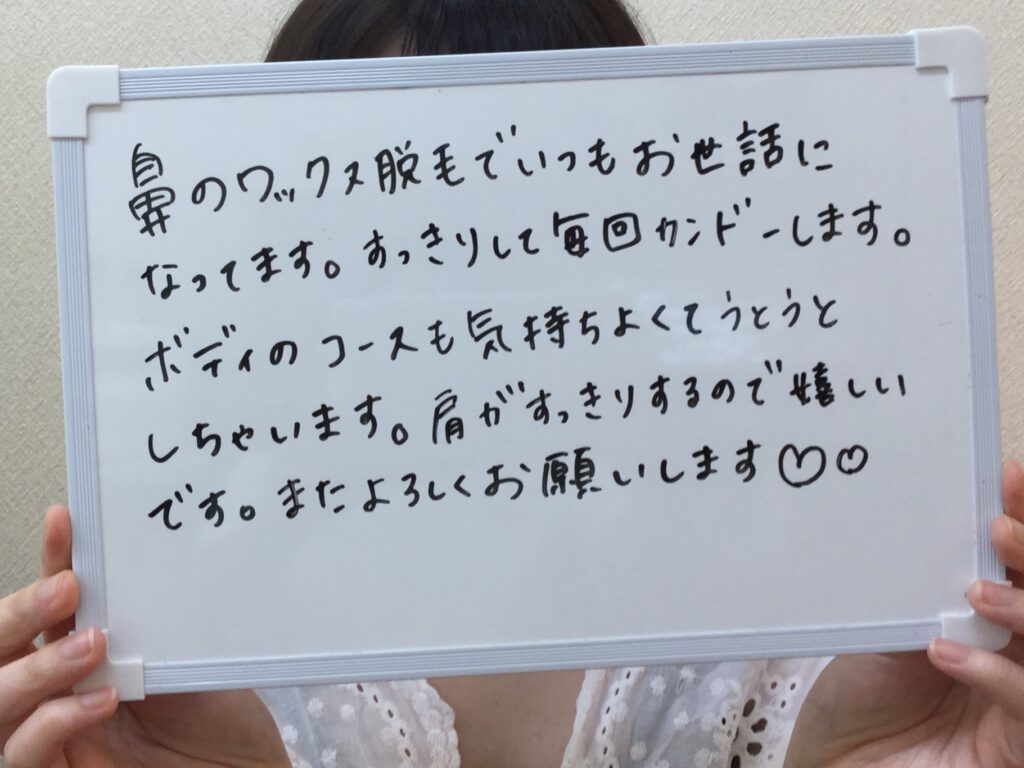 鼻のワックス脱毛でいつもお世話に
なってます。すっきりして毎回カンドーします。
ボディのコースも気持ちよくてうとうと
しちゃいます。肩がすっきりするので嬉しい
です。またよろしくお願いします♡♡